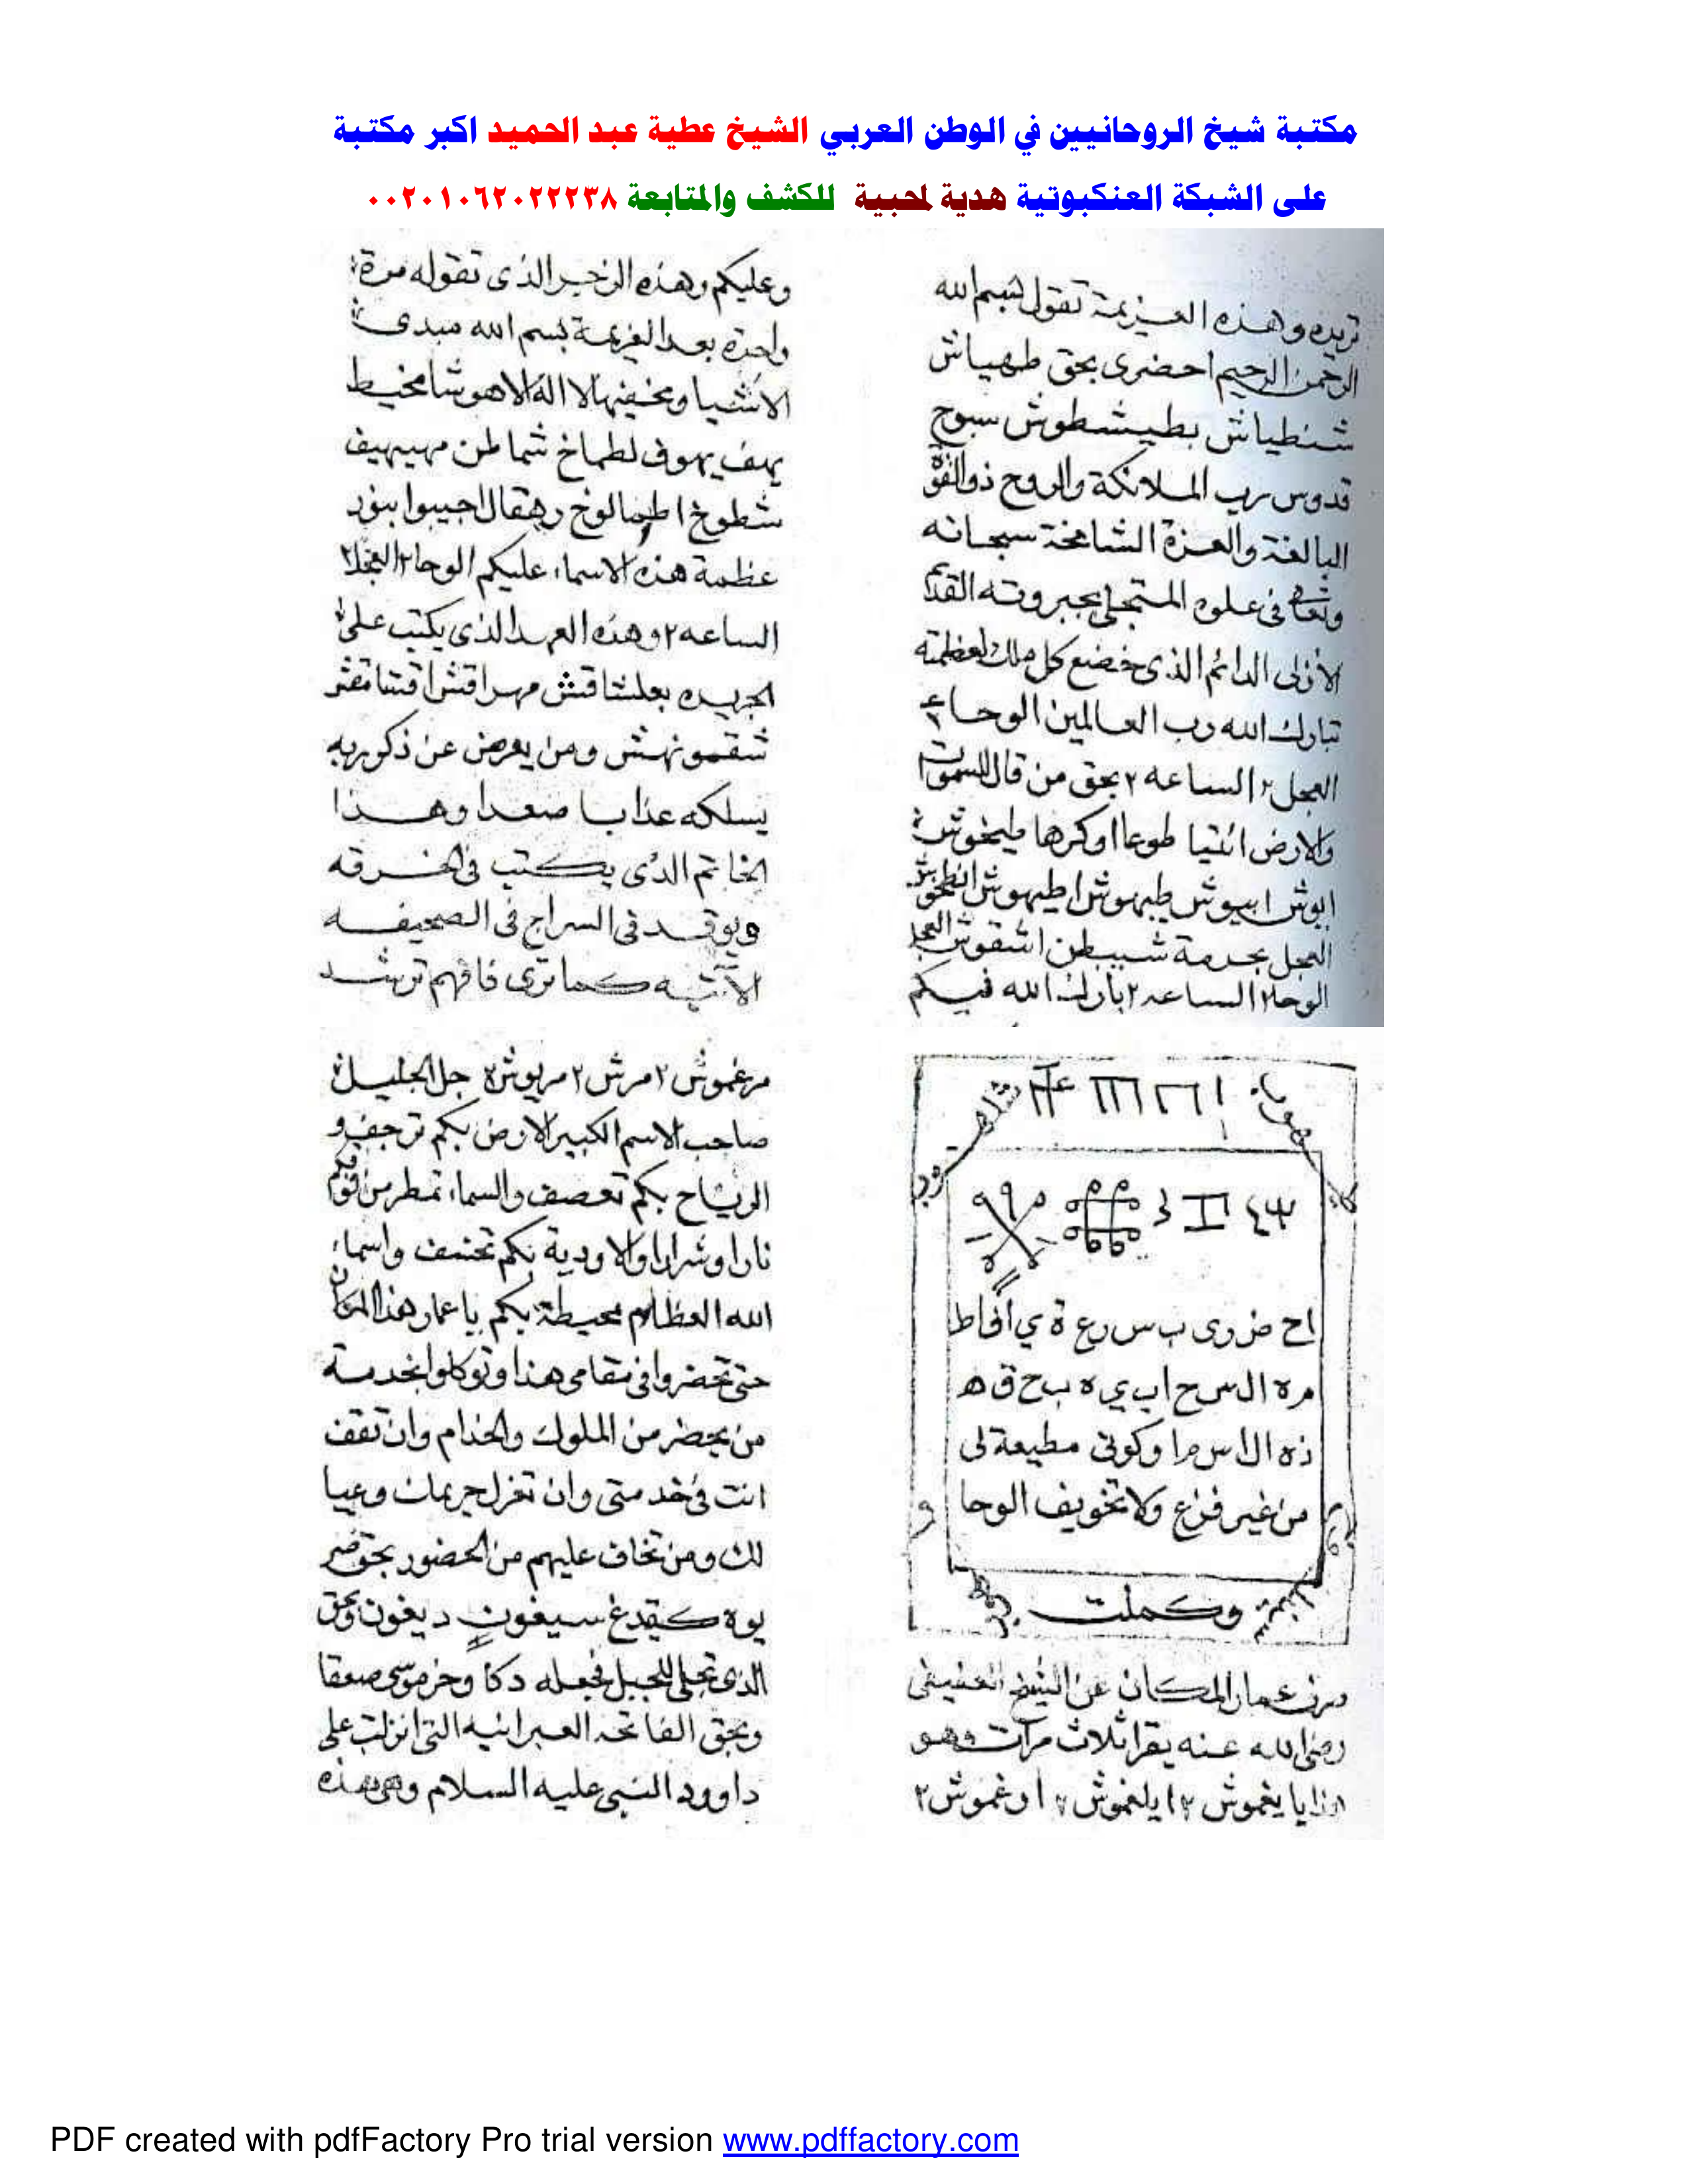 مكتبة شيخ الروحانيين في الوطن العربي الشيخ عطية عبد الحميد اكبر مكتبة
على الشبكة العنكبوتية هدية لمحبية للكشف والمتابعة ٠٠٢٠١٠٦٢٠٢٢٢٣٨
تريده وهذه العزيمة تقول بسم الله
الرحمن الرحيم احضرى بحق طهياش
شنطياش بطيشطوش سبوح
قدوس رب الملائكة والروح ذو القوة
البالغة والعزة الشامخة سبحانه
وتعالى فى علوه المتجلى بجبروته القدىم
الازلى الدائم الذى خضع كل ملك لعظمته
تبارك الله رب العالمين الوحا ٢
العجل ٢ الساعه ٢ بحق من قال للسموات
والارض ائتيا طوعا اوكرها
ابوش اسيوش طيهوش اطيهوش
العجل بحرمة شبيطن اشقوش العجل
الوحا ٢ الساعه ٢ بارك الله فيكم
وعليكم وهذه الزجر الذى تقوله مرة
واحدة بعد العزيمة بسم الله مبدى
الاشيا ومخفيها لا اله الا هو شامخيط
يهف يهوف لطماخ شماطن مهيهيف
شطوخ اطمالوخ رهقال اجيبوا بنور
عظمة هذه الاسماء عليكم الوحا ٢ العجل ٢
الساعه ٢ وهذه العهد الذى يكتب على
الجريده بعلشاقش مهراقش اقشامقش
شقمونهش ومن يعرض عن ذكر ربه
يسلكه عذابا صعدا وهذا
الخاتم الذى يكتب فى الخرقه
ويوقد فى السراج فى الصحيفه
الاتيه كما ترى فافهم ترشد
اح ض ر ى ب س ر ع ة ي اف اط
م ة ال س ح اب ي ه ب ح ق ه
ذه ال اس م ا وكونى مطيعة لى
من غير فزع ولا تخويف الوحا
وكملت
صرف عمار المكان عن الشيخ
رضى الله عنه يقرا ثلاث مرات وهو
هذا يا يغموش ٢ ايلغموش ٢ اوغموش ٢
مرغموش ٢ مرش ٢ مريوش ٢ جل الجليل
صاحب الاسم الكبير الارض بكم ترجف و
الرياح بكم تعصف والسماء تمطر من فوقكم
نارا وشرارا والاودية بكم تخسف واسماء
الله العظام محيطة بكم يا عمار هذا المكان
حتى تحضروا فى مقامى هذا وتوكلوا بخدمة
من يحضر من الملوك والخدام وان تقف
انت فى خدمتى وان تعزل حريمك وعيا
لك ومن تخاف عليهم من الحضور بحق
يوه كيقدغ سيغون ديغون وبحق
الذى تجلى للجبل فجعله دكا وخر موسى صعقا
وبحق الفاتحه العبرانيه التى انزلت على
داوود النبى عليه السلام وهى هذه
PDF created with pdfFactory Pro trial version www.pdffactory.com